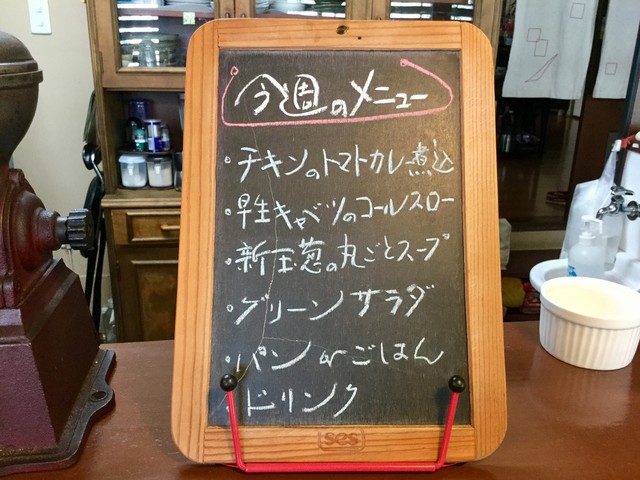 今週のメニュー
・チキンのトマトカレー煮込
・早生キャベツのコールスロー
・新玉葱の丸ごとスープ
・グリーンサラダ
・パン or ごはん
・ドリンク
SCS